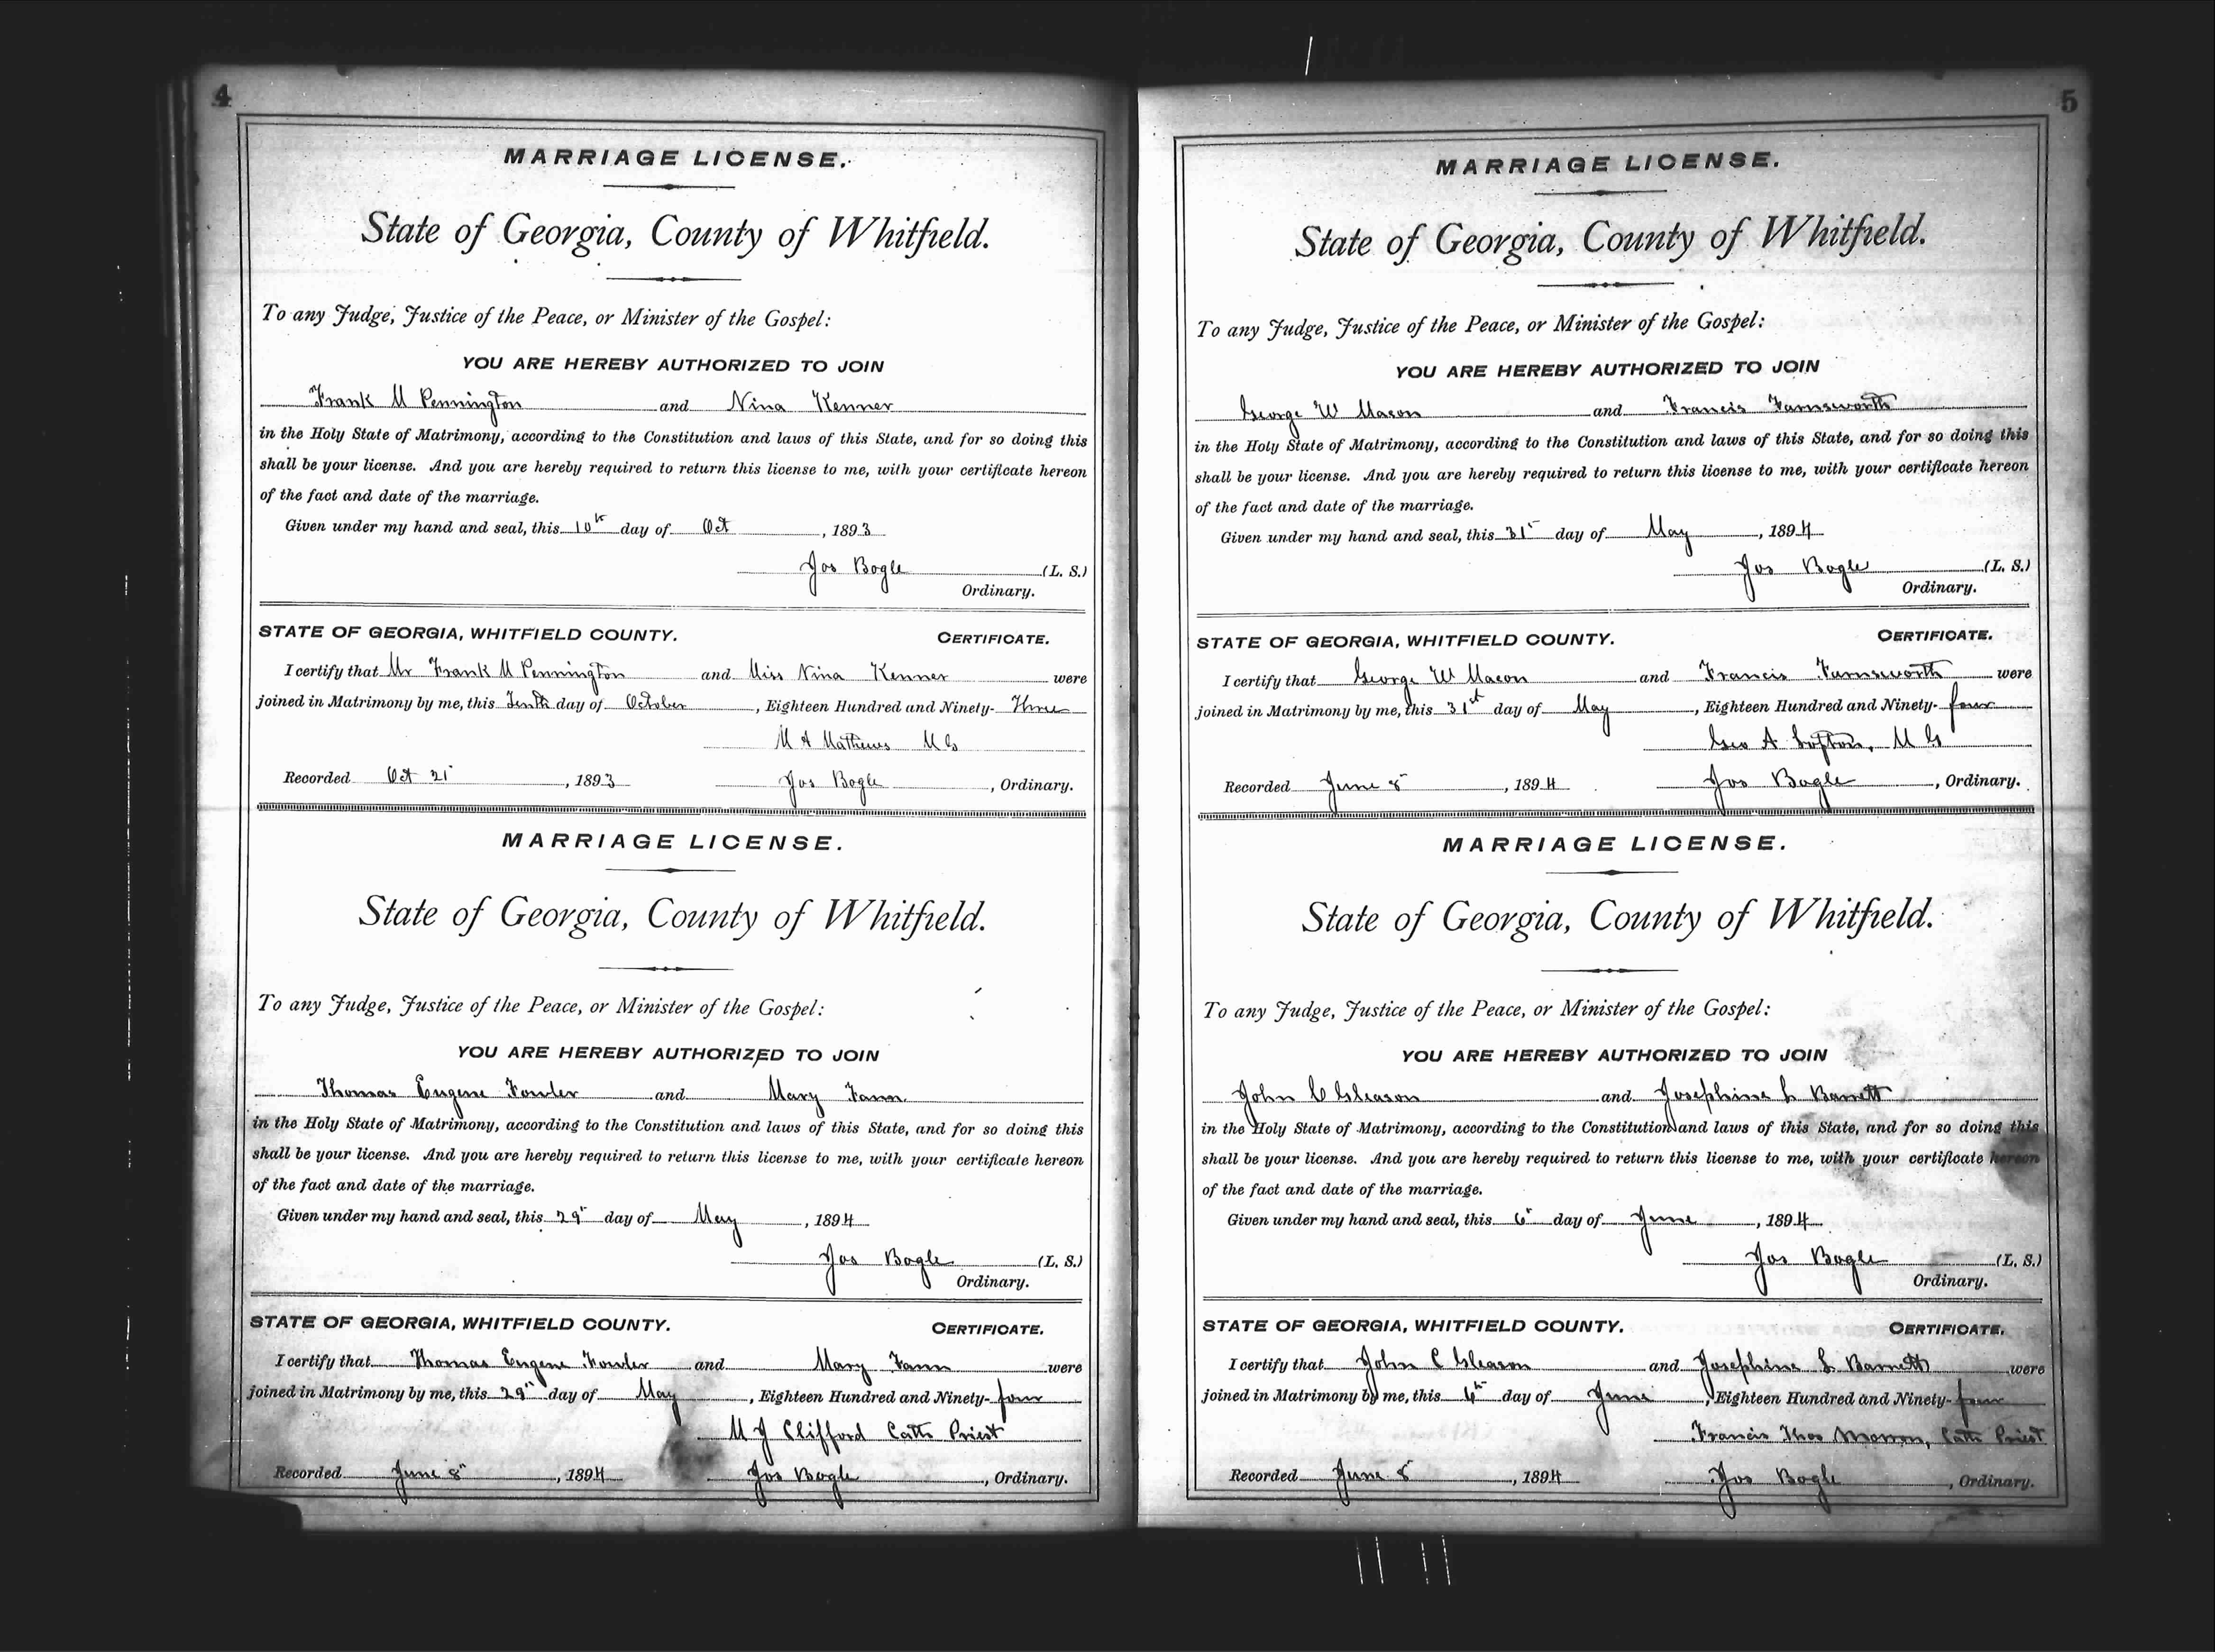 4
MARRIAGE LICENSE.
State of Georgia, County of Whitfield.
To any Judge, Justice of the Peace, or Minister of the Gospel:
YOU ARE HEREBY AUTHORIZED TO JOIN
Frank M Pennington and Nina Kenner
in the Holy State of Matrimony, according to the Constitution and laws of this State, and for so doing this
shall be your license. And you are hereby required to return this license to me, with your certificate hereon
of the fact and date of the marriage.
Given under my hand and seal, this 10th day of Oct, 1893
Jos Bogle (L. S.)
Ordinary.
STATE OF GEORGIA, WHITFIELD COUNTY. CERTIFICATE.
I certify that Mr Frank M Pennington and Miss Nina Kenner were
joined in Matrimony by me, this Tenth day of October, Eighteen Hundred and Ninety-Three
M A Mathews M G
Recorded Oct 21, 1893 Jos Bogle, Ordinary.
MARRIAGE LICENSE.
State of Georgia, County of Whitfield.
To any Judge, Justice of the Peace, or Minister of the Gospel:
YOU ARE HEREBY AUTHORIZED TO JOIN
Thomas Eugene Fowler and Mary Fann
in the Holy State of Matrimony, according to the Constitution and laws of this State, and for so doing this
shall be your license. And you are hereby required to return this license to me, with your certificate hereon
of the fact and date of the marriage.
Given under my hand and seal, this 29" day of May, 1894
Jos Bogle (L. S.)
Ordinary.
STATE OF GEORGIA, WHITFIELD COUNTY. CERTIFICATE.
I certify that Thomas Eugene Fowler and Mary Fann were
joined in Matrimony by me, this 29" day of May, Eighteen Hundred and Ninety-four
M J Clifford Cath Priest
Recorded June 8", 1894 Jos Bogle, Ordinary.
5
MARRIAGE LICENSE.
State of Georgia, County of Whitfield.
To any Judge, Justice of the Peace, or Minister of the Gospel:
YOU ARE HEREBY AUTHORIZED TO JOIN
George W Macon and Francis Farnsworth
in the Holy State of Matrimony, according to the Constitution and laws of this State, and for so doing this
shall be your license. And you are hereby required to return this license to me, with your certificate hereon
of the fact and date of the marriage.
Given under my hand and seal, this 31" day of May, 1894
Jos Bogle (L. S.)
Ordinary.
STATE OF GEORGIA, WHITFIELD COUNTY. CERTIFICATE.
I certify that George W Macon and Francis Farnsworth were
joined in Matrimony by me, this 31st day of May, Eighteen Hundred and Ninety-four
Geo A Lofton, M G
Recorded June 8", 1894 Jos Bogle, Ordinary.
MARRIAGE LICENSE.
State of Georgia, County of Whitfield.
To any Judge, Justice of the Peace, or Minister of the Gospel:
YOU ARE HEREBY AUTHORIZED TO JOIN
John C Gleason and Josephine L Barrett
in the Holy State of Matrimony, according to the Constitution and laws of this State, and for so doing this
shall be your license. And you are hereby required to return this license to me, with your certificate hereon
of the fact and date of the marriage.
Given under my hand and seal, this 6" day of June, 1894
Jos Bogle (L. S.)
Ordinary.
STATE OF GEORGIA, WHITFIELD COUNTY. CERTIFICATE.
I certify that John C Gleason and Josephine L Barrett were
joined in Matrimony by me, this 6th day of June, Eighteen Hundred and Ninety-four
Francis Thos Cath Priest
Recorded June 8", 1894 Jos Bogle, Ordinary.